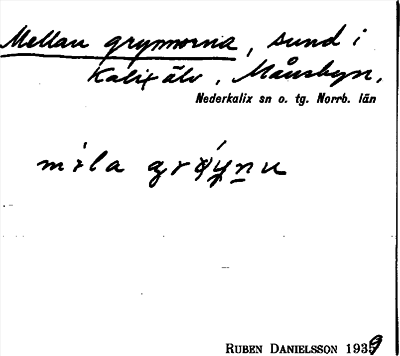 Mellan grynnorna, sund i
Kalix älv, Månsbyn,
Nederkalix sn o. tg. Norrb. län
RUBEN DANIELSSON 1939